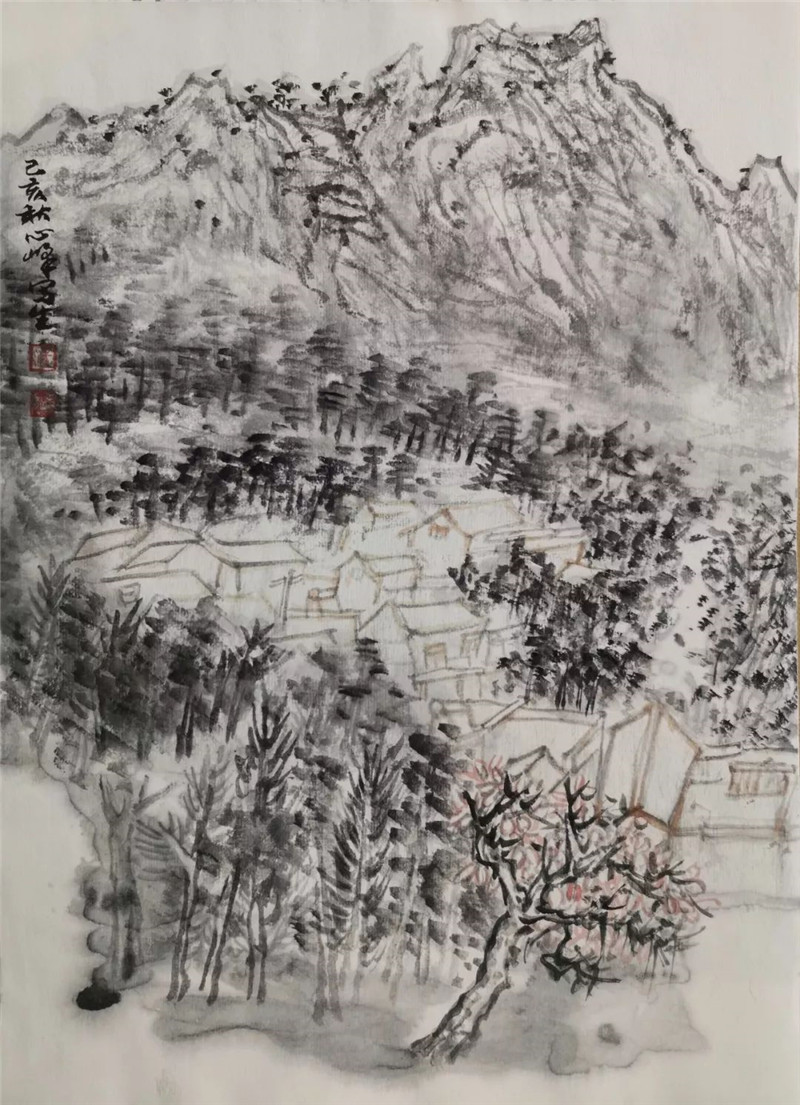 己亥秋心峰写生